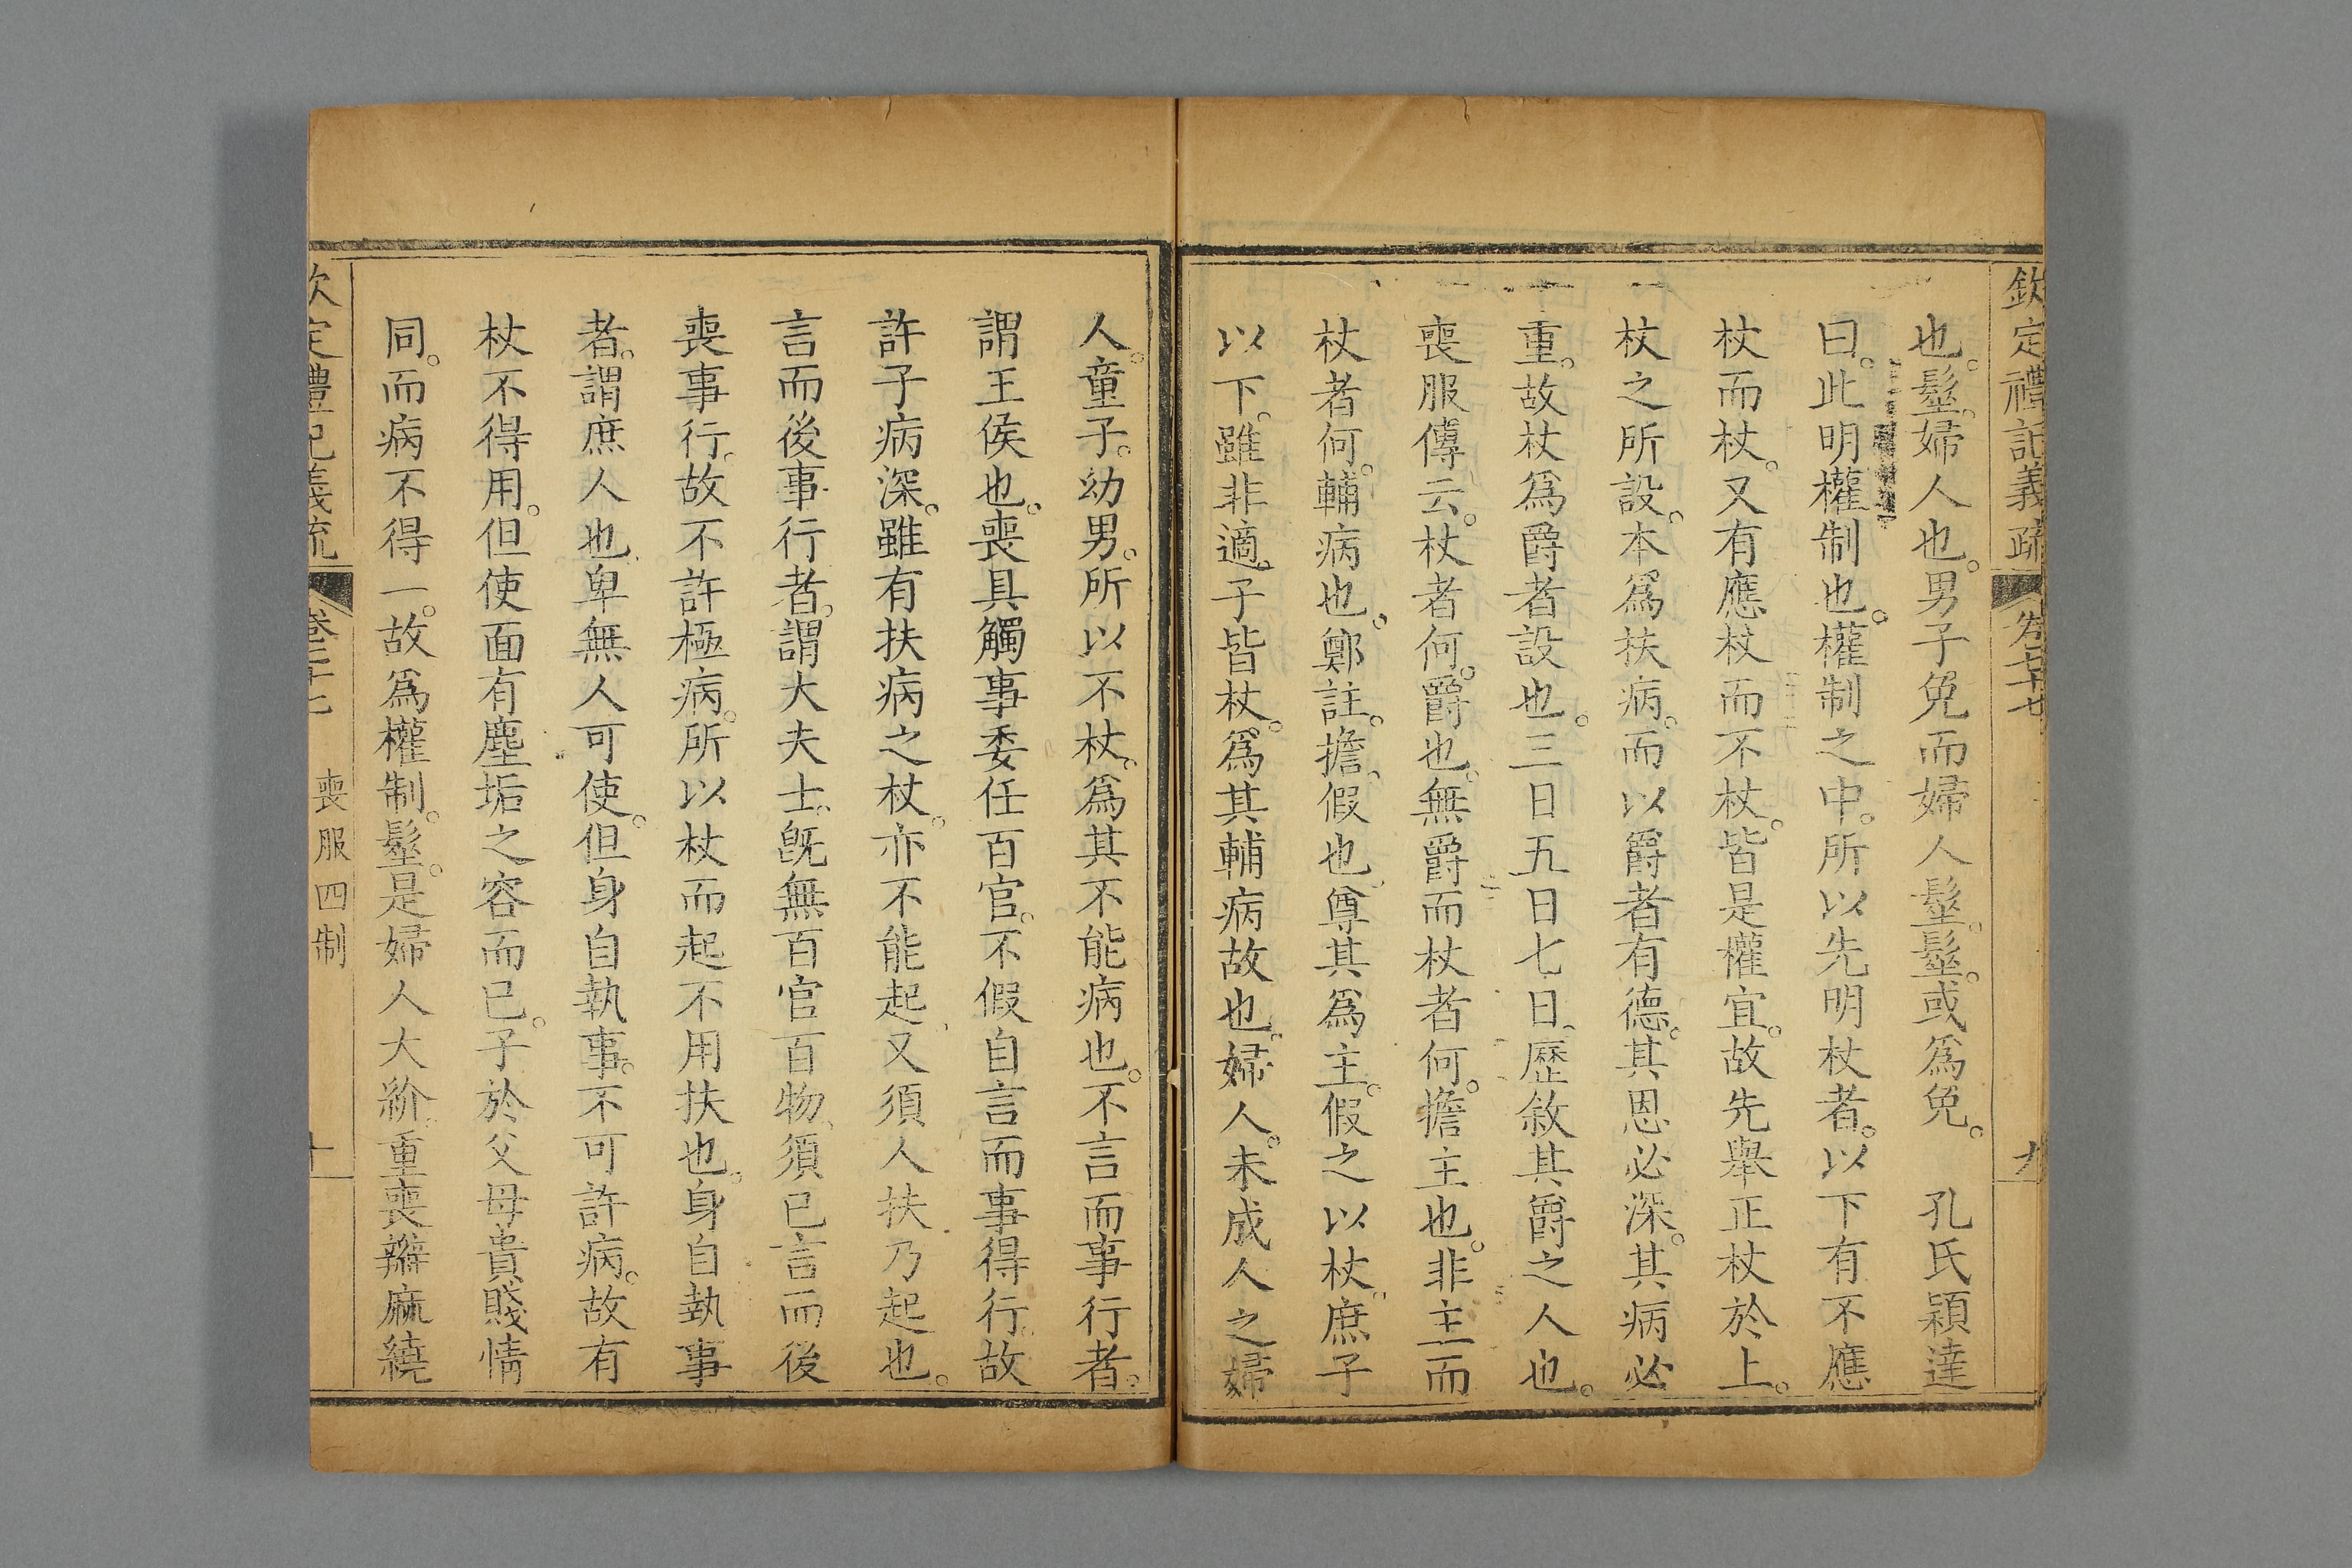 欽定禮記義疏 卷七十七 九
也。髽。婦人也。男子免而婦人髽。髽。或爲免。 孔氏穎達
曰。此明權制也。權制之中。所以先明杖者。以下有不應
杖而杖。又有應杖而不杖。皆是權宜。故先舉正杖於上。
杖之所設。本爲扶病。而以爵者有德。其恩必深。其病必
重。故杖爲爵者設也。三日五日七日、歷敘其爵之人也。
喪服傳云。杖者何。爵也。無爵而杖者何。擔主也。非主而
杖者何。輔病也。鄭註。擔、假也、尊其爲主。假之以杖。庶子
以下。雖非適。子皆杖。爲其輔病故也。婦人。未成人之婦
人。童子。幼男。所以不杖。爲其不能病也。不言而事行者。
謂王侯也。喪具觸事委任百官。不假自言而事得行。故
許子病深。雖有扶病之杖。亦不能起、又須人扶乃起也。
言而後事行者。謂大夫士。旣無百官百物、須已言而後
喪事行。故不許極病。所以杖而起不用扶也。身自執事
者。謂庶人也。卑無人可使。但身自執事。不可許病。故有
杖不得用。但使面有塵垢之容而已。子於父母貴賤情
同。而病不得一。故爲權制。髽。是婦人大紒重喪辮麻繞
欽定禮記義疏 卷七十七 喪服四制 十